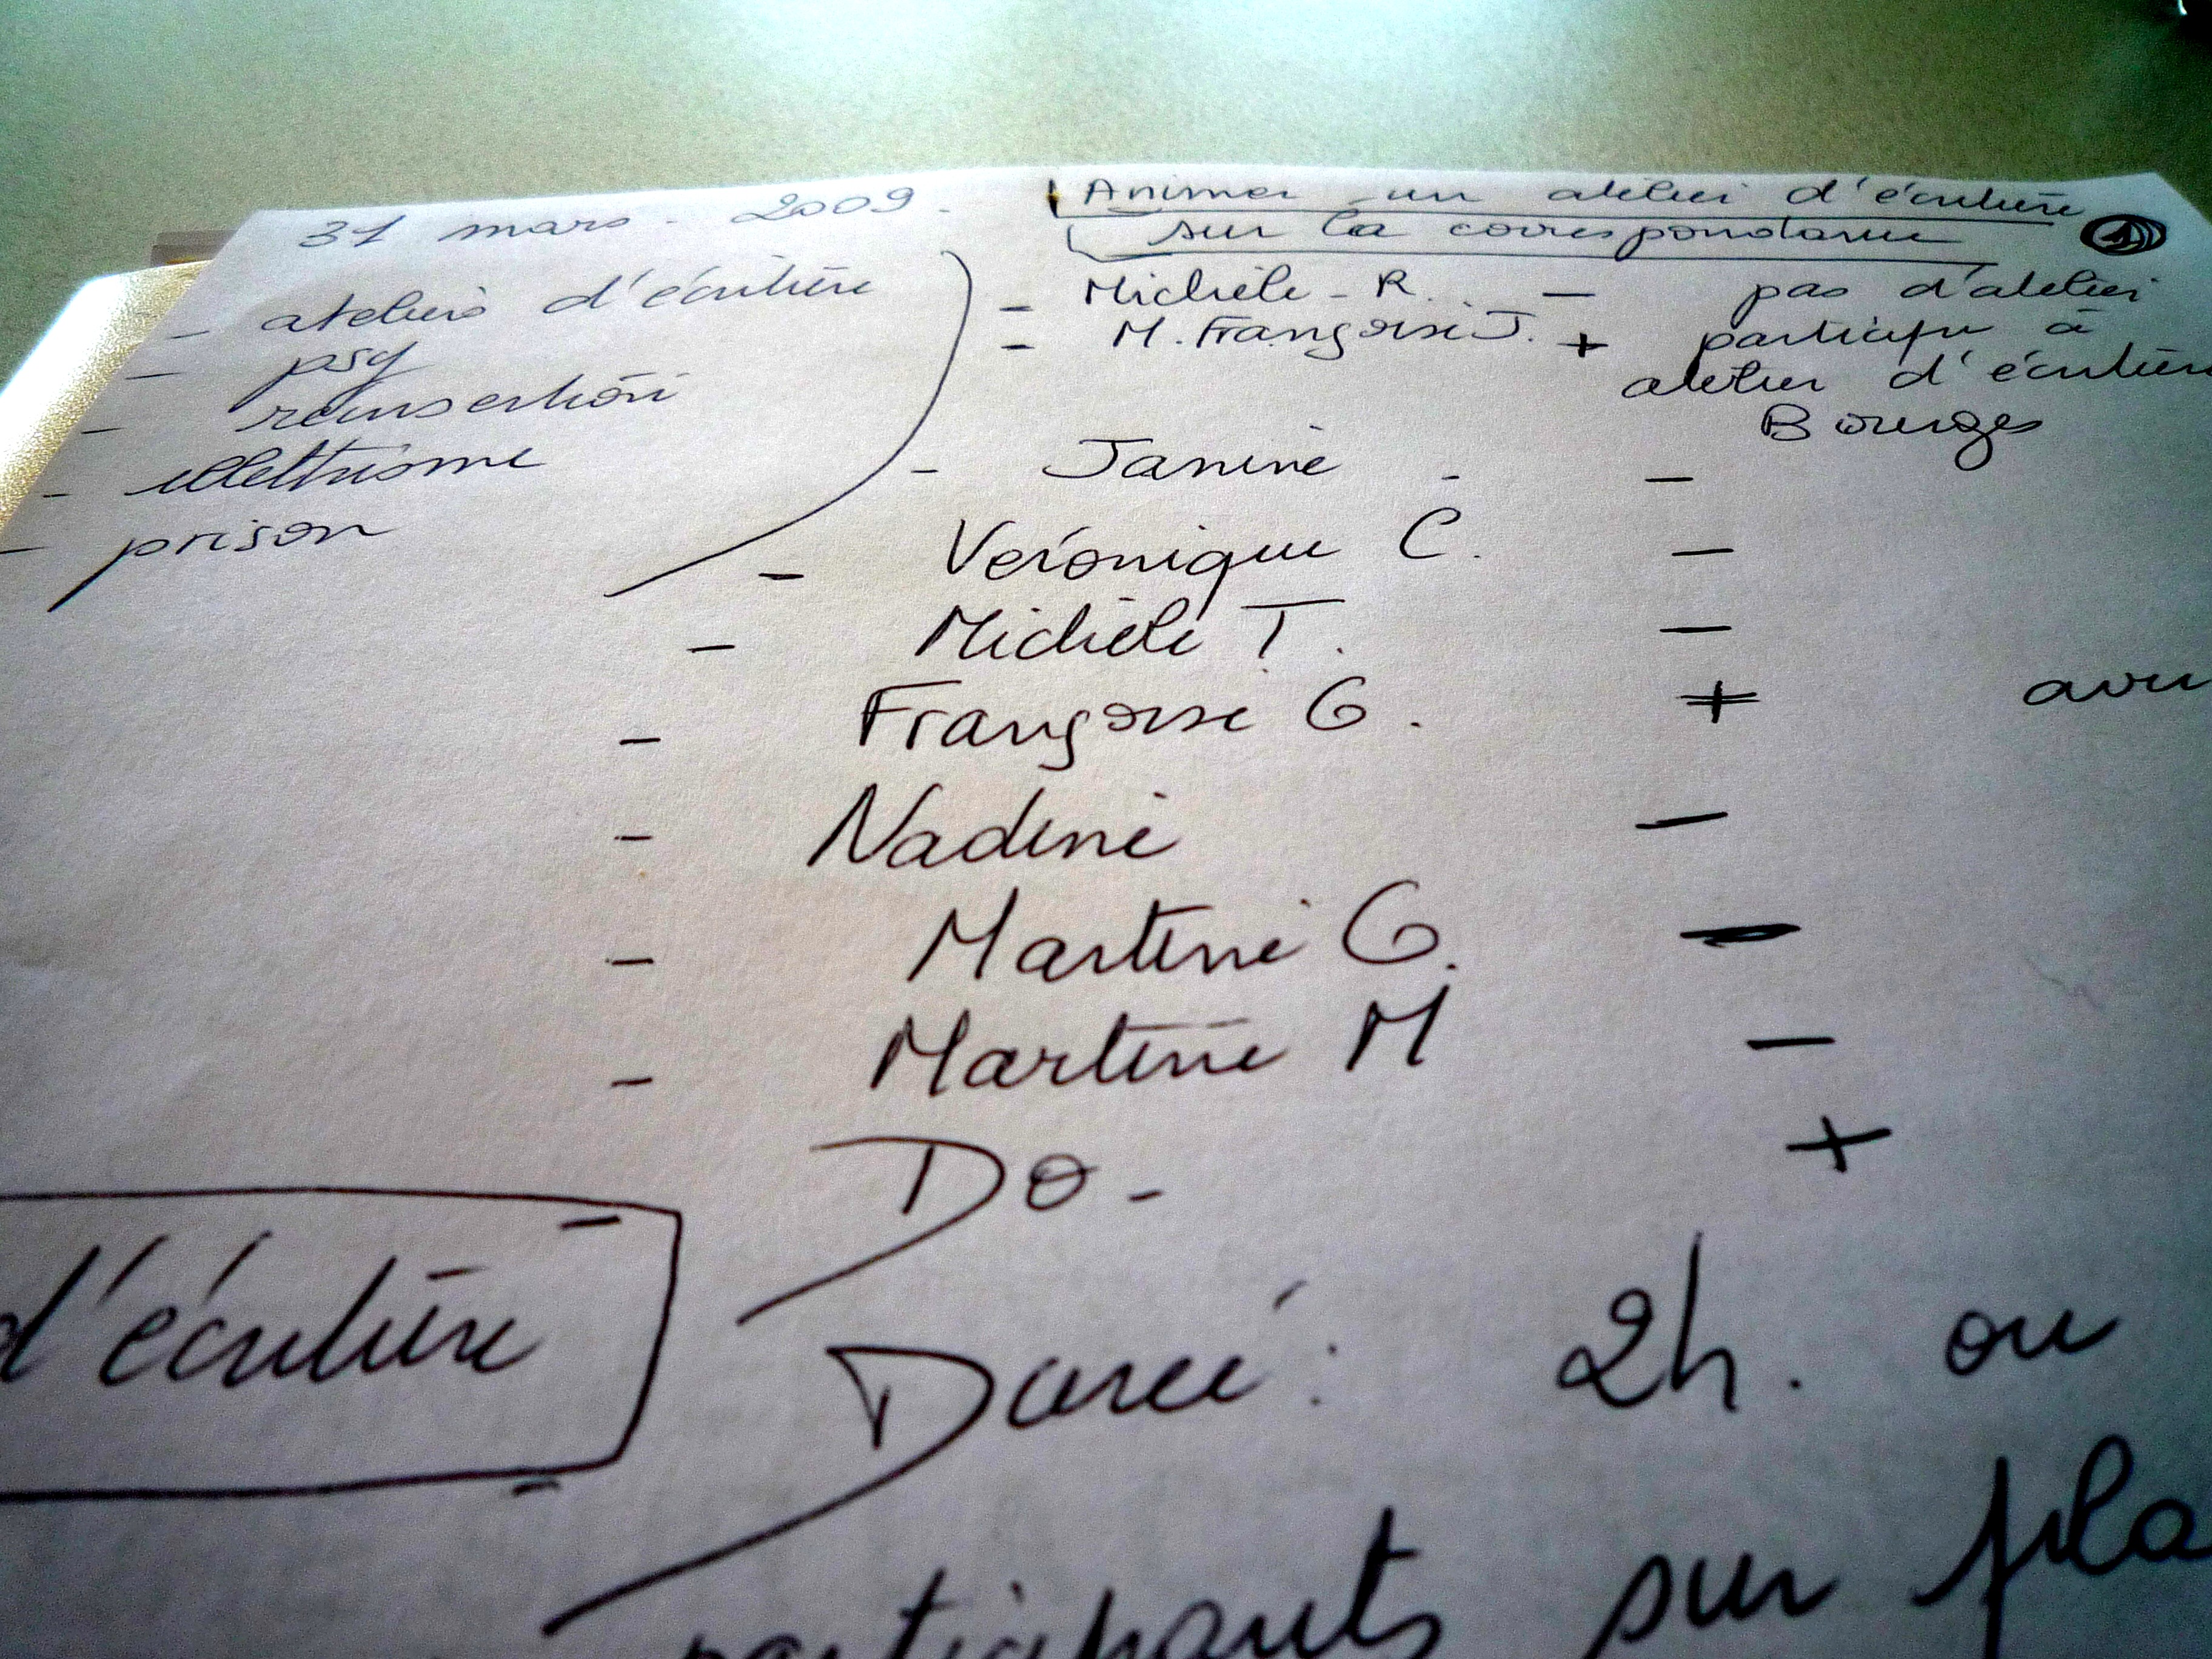 31 mars - 2009.
Animer un atelier d'écriture
sur la correspondance
1
- ateliers d'écriture
- psy
- réinsertion
- illettrisme
- prison
- Michèle - R. - pas d'atelier
- M. Françoise J. + participu à
atelier d'écriture
Bourges
- Janine - -
- Véronique C. -
- Michèle T. -
- Françoise G. +
- Nadine -
- Martine G. -
- Martine M -
- Do - +
d'écriture
- Durée : 2h. ou
participants sur pla